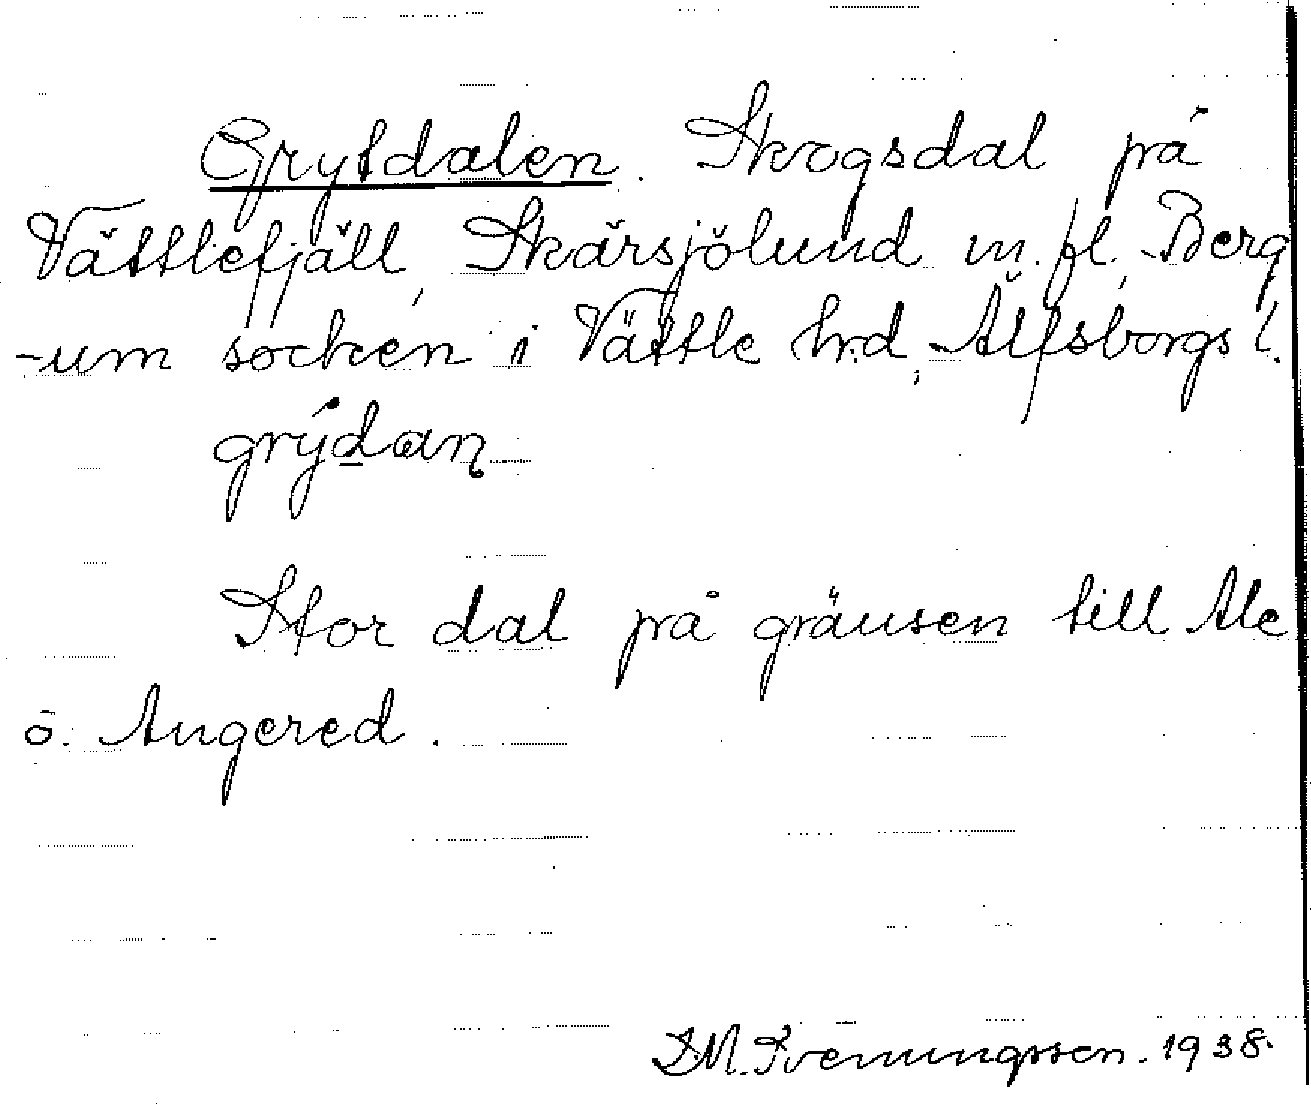 Grytdalen. Skogsdal på
Vättlefjäll, Skärsjölund m. fl., Berg
-um socken i Vättle hrd, Älfsborgs l.
grýdaɳ
Stor dal på gränsen till Ale
o. Angered.
D.M. Svenningsson. 1938.